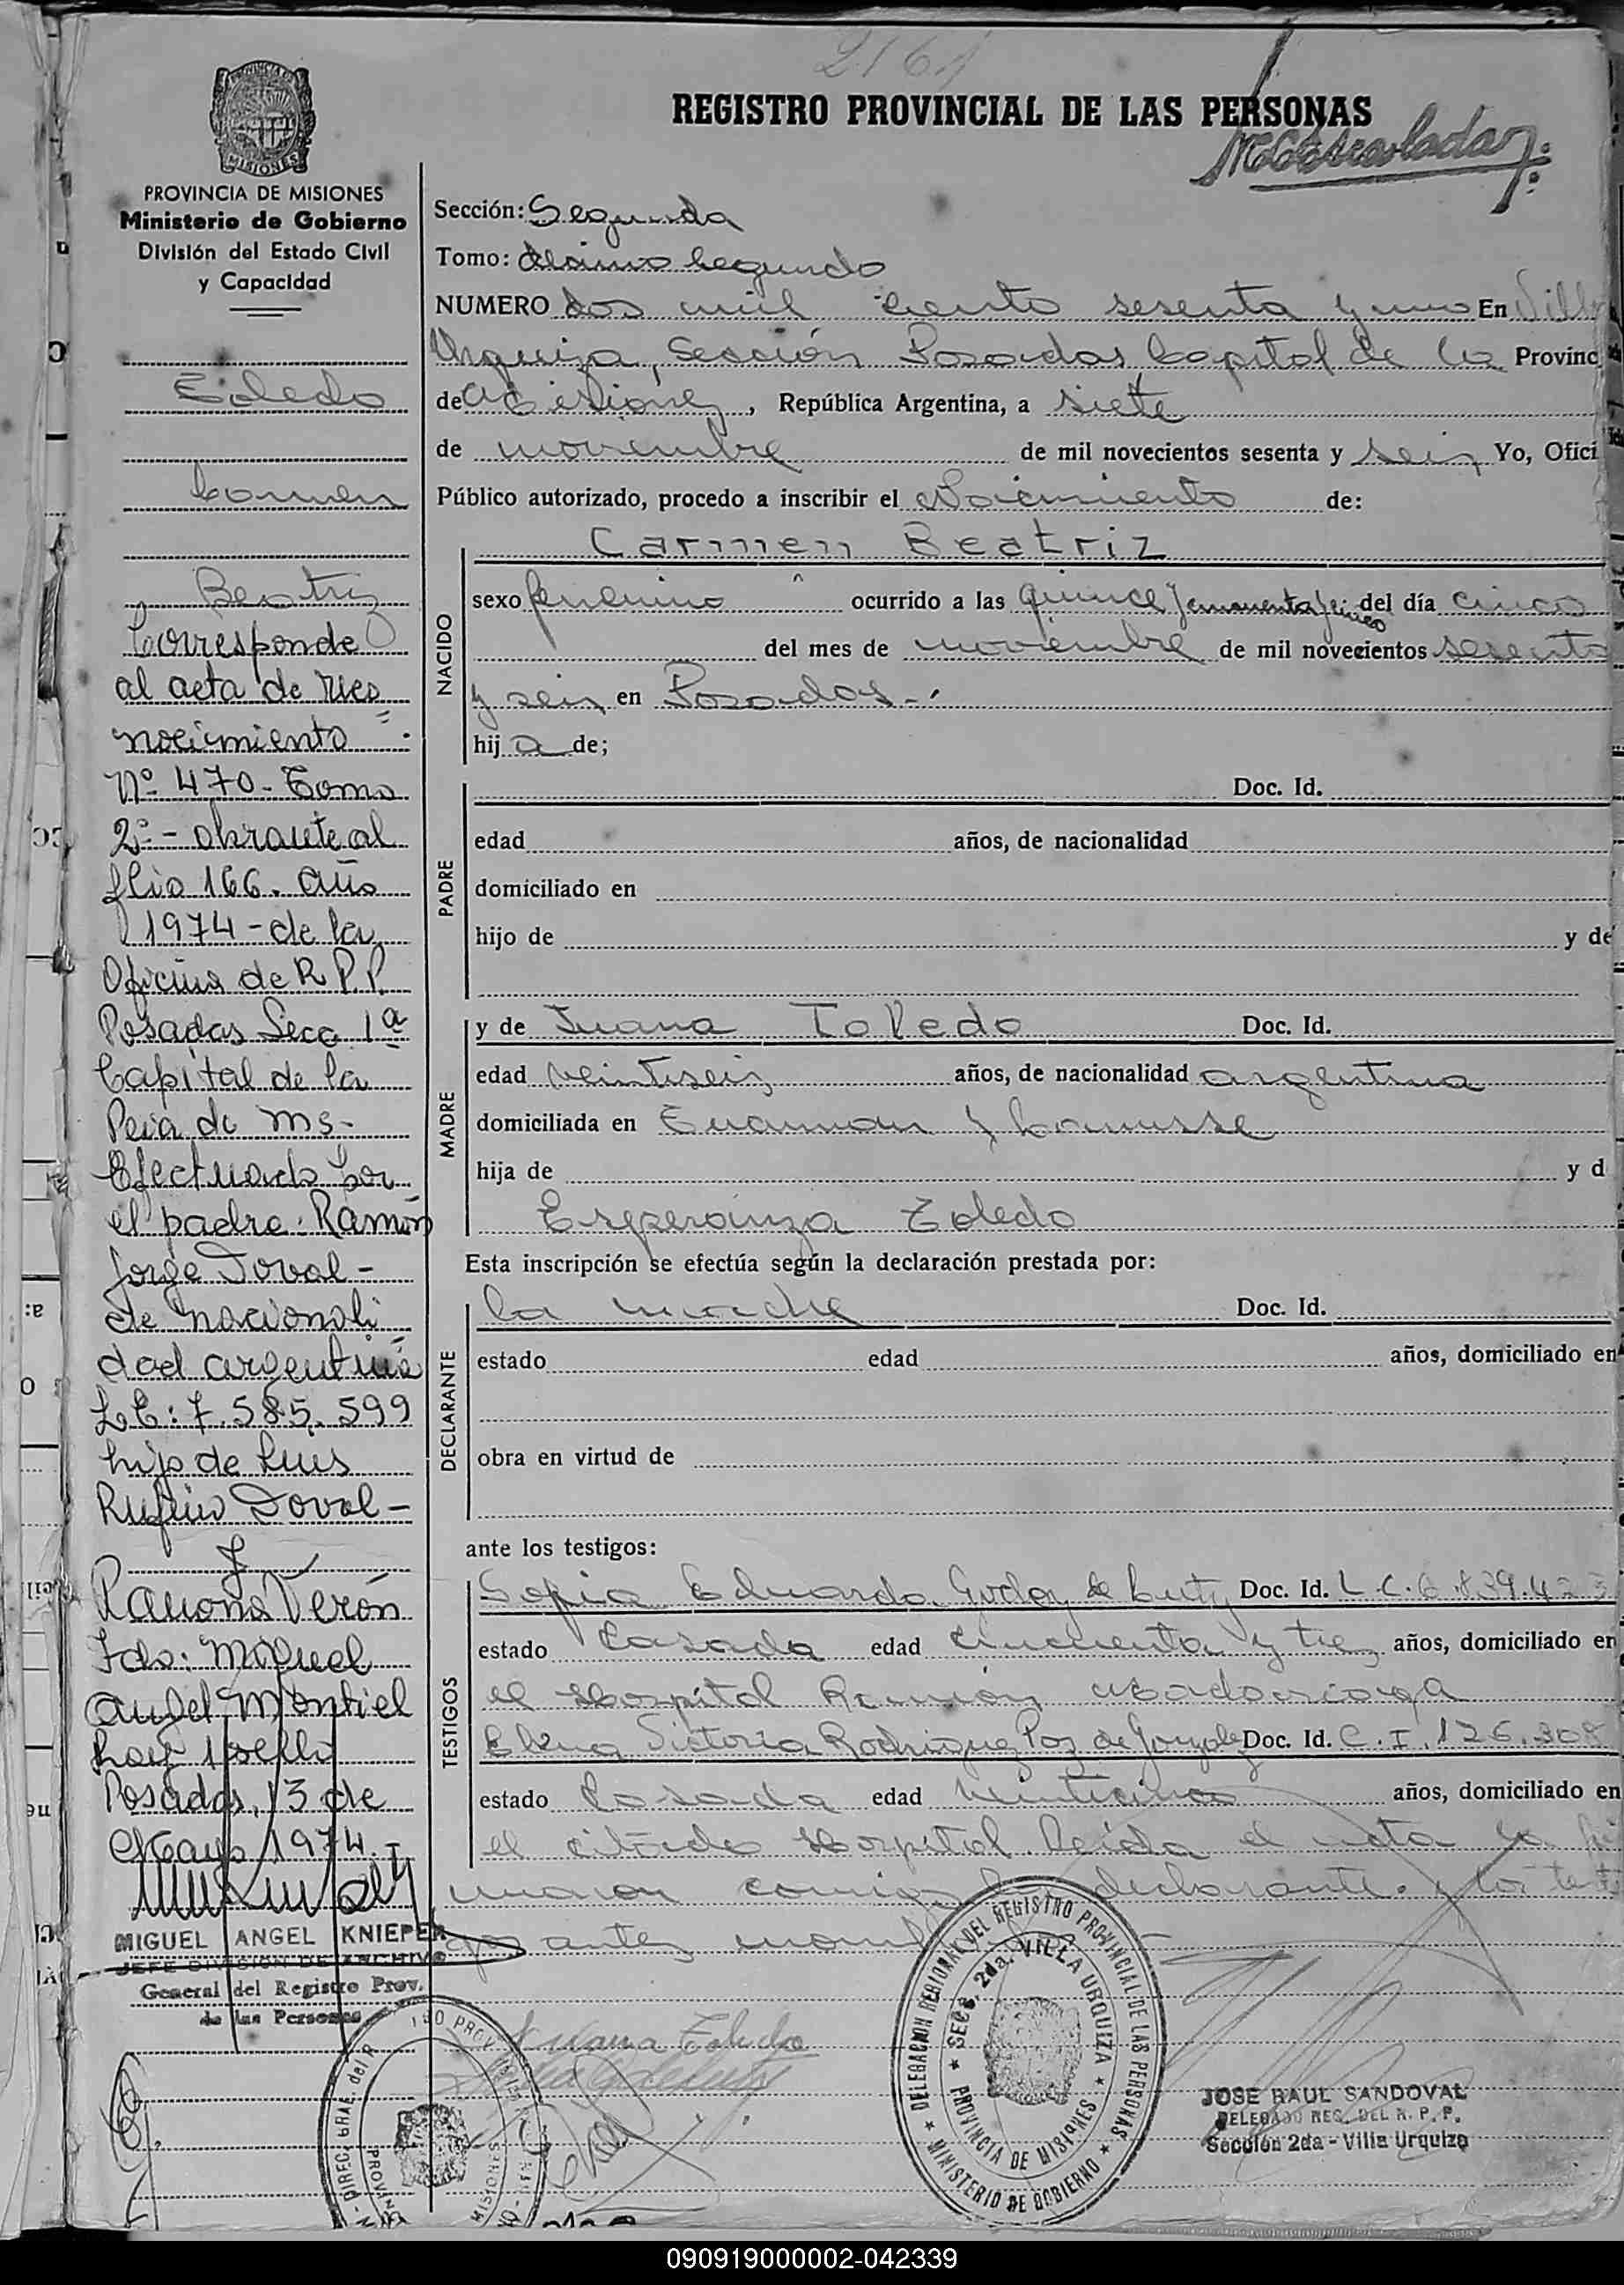 2161
REGISTRO PROVINCIAL DE LAS PERSONAS
MISIONES
PROVINCIA DE MISIONES
Ministerio de Gobierno
División del Estado Civil
y Capacidad
Toledo
Carmen
Beatriz
Corresponde
al acta de reco
nocimiento
Nº 470 - Tomo
2º - obrante al
folio 166. año
1974 - de la
Oficina de R.P.P.
Posadas Secc. 1ª
Capital de la
Pcia de Ms-
Efectuado por
el padre: Ramón
Jorge Doval -
de nacionali
dad argentina
L.E: 7.585.599
hijo de Luis
Rufino Doval -
y
Ramona Verón
Fdo: Miguel
Angel Montiel
Posadas, 13 de
Mayo 1974.-
MIGUEL ANGEL KNIEPER
JEFE DIVISION DE ARCHIVO
General del Registro Prov.
de las Personas
Sección: Segunda
Tomo: décimo segundo
NUMERO dos mil ciento sesenta y uno En Villa
Urquiza, Sección Posadas Capital de la Provinc
de Misiones, República Argentina, a siete
de noviembre de mil novecientos sesenta y seis Yo, Ofici
Público autorizado, procedo a inscribir el Nacimiento de:
NACIDO
Carmen Beatriz
sexo femenino ocurrido a las quince y cincuenta y cinco del día cinco
del mes de noviembre de mil novecientos sesenta
y seis en Posadas.-
hij a de;
PADRE
Doc. Id.
edad años, de nacionalidad
domiciliado en
hijo de y de
MADRE
y de Juana Toledo Doc. Id.
edad veintiseis años, de nacionalidad argentina
domiciliada en Tucuman y Lanusse
hija de y d
Esperanza Toledo
Esta inscripción se efectúa según la declaración prestada por:
DECLARANTE
la madre Doc. Id.
estado edad años, domiciliado en
obra en virtud de
ante los testigos:
TESTIGOS
Sofia Eduarda Godoy de Doc. Id. L.C.6.839.423
estado Casada edad cincuenta y tres años, domiciliado en
el Hospital Ramón Madariaga
Elena Victoria Rodriguez Paz de Doc. Id. C.I. 126.308
estado Casada edad veinticinco años, domiciliado en
el citado Hospital. Leída el acta la fir
maron conmigo la declarante y los testi
gos antes
Juana Toledo
DELEGACION REGIONAL DEL REGISTRO PROVINCIAL DE LAS PERSONAS
MINISTERIO DE GOBIERNO
SECC. 2da. VILLA URQUIZA
PROVINCIA DE MISIONES
JOSE RAUL SANDOVAL
DELEGADO REG. DEL R. P. P.
Sección 2da - Villa Urquiza
090919000002-042339